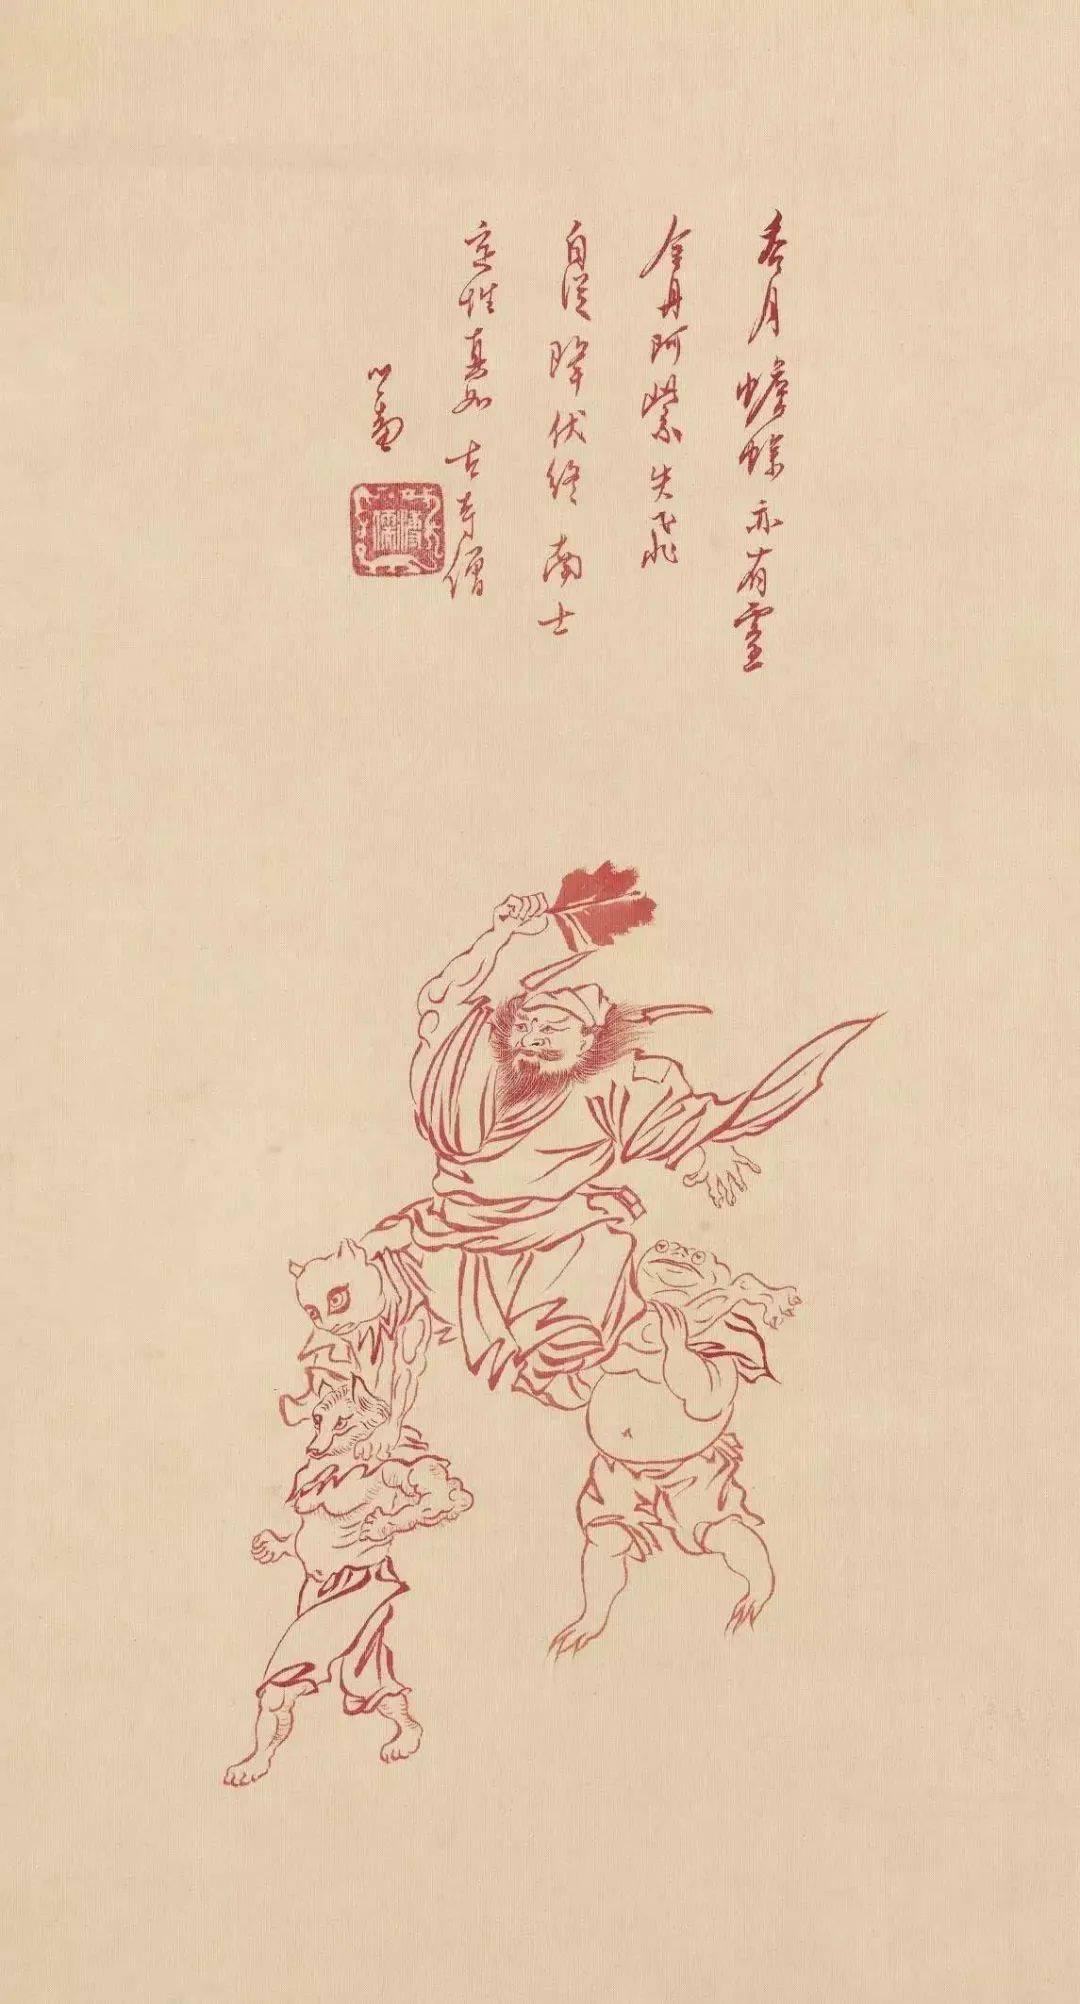 吞月蟾蜍亦有靈
金丹阿紫失飛
自從降伏終南士
定性真如古寺僧
心畬
溥儒